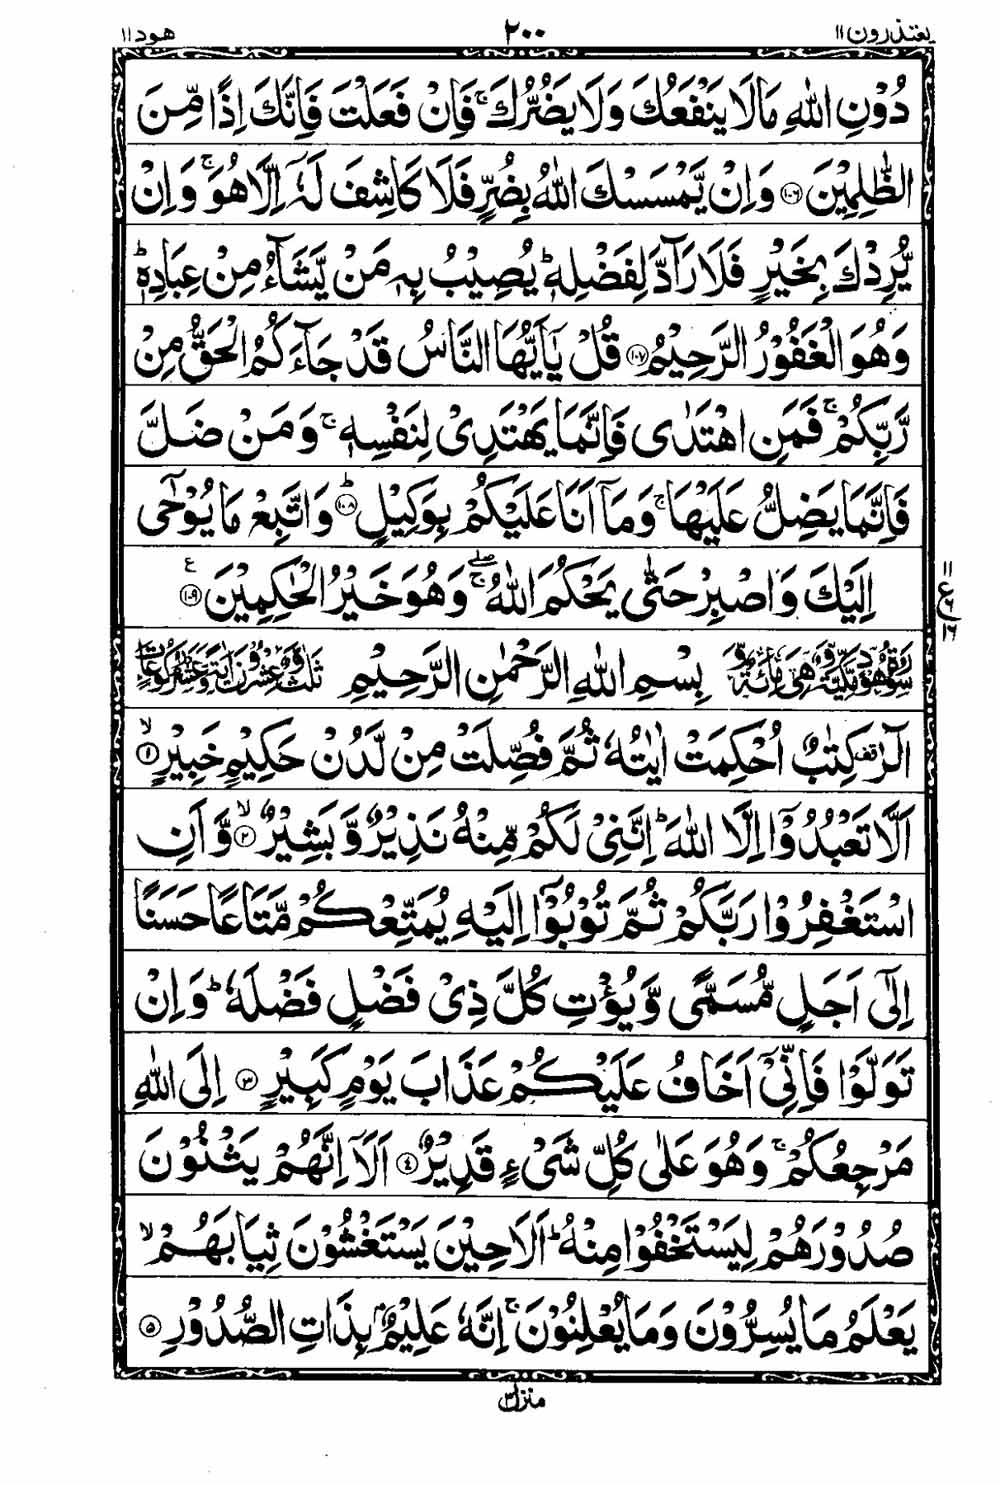 یعتذرون ۱۱ ۲۰۰ ھود ۱۱
دُوۡنِ اللّٰهِ مَا لَا يَنۡفَعُكَ وَلَا يَضُرُّكَ‌ۚ فَاِنۡ فَعَلۡتَ فَاِنَّكَ اِذًا مِّنَ
الظّٰلِمِيۡنَ ۝۱۰۶ وَاِنۡ يَّمۡسَسۡكَ اللّٰهُ بِضُرٍّ فَلَا كَاشِفَ لَهٗۤ اِلَّا هُوَ‌ۚ وَاِنۡ
يُّرِدۡكَ بِخَيۡرٍ فَلَا رَآدَّ لِفَضۡلِهٖ‌ؕ يُصِيۡبُ بِهٖ مَنۡ يَّشَآءُ مِنۡ عِبَادِهٖ‌ؕ
وَهُوَ الۡغَفُوۡرُ الرَّحِيۡمُ ۝۱۰۷ قُلۡ يٰۤاَيُّهَا النَّاسُ قَدۡ جَآءَكُمُ الۡحَقُّ مِنۡ
رَّبِّكُمۡ‌ۚ فَمَنِ اهۡتَدٰى فَاِنَّمَا يَهۡتَدِىۡ لِنَفۡسِهٖ‌ۚ وَمَنۡ ضَلَّ
فَاِنَّمَا يَضِلُّ عَلَيۡهَا‌ۚ وَمَاۤ اَنَا عَلَيۡكُمۡ بِوَكِيۡلٍؕ ۝۱۰۸ وَاتَّبِعۡ مَا يُوۡحٰٓى
اِلَيۡكَ وَاصۡبِرۡ حَتّٰى يَحۡكُمَ اللّٰهُ‌ ۖۚ وَهُوَ خَيۡرُ الۡحٰكِمِيۡنَ ۝۱۰۹ ع
۱۱ ع ۶ ۱۶
سورة هود مكية وهى مائة و بِسۡمِ اللّٰهِ الرَّحۡمٰنِ الرَّحِيۡمِ ثلث وعشرون اية وعشر ركوعات
الٓرٰ‌ قف كِتٰبٌ اُحۡكِمَتۡ اٰيٰتُهٗ ثُمَّ فُصِّلَتۡ مِنۡ لَّدُنۡ حَكِيۡمٍ خَبِيۡرٍۙ ۝۱
اَلَّا تَعۡبُدُوۡۤا اِلَّا اللّٰهَ‌ؕ اِنَّنِىۡ لَكُمۡ مِّنۡهُ نَذِيۡرٌ وَّبَشِيۡرٌۙ ۝۲ وَّاَنِ
اسۡتَغۡفِرُوۡا رَبَّكُمۡ ثُمَّ تُوۡبُوۡۤا اِلَيۡهِ يُمَتِّعۡكُمۡ مَّتَاعًا حَسَنًا
اِلٰٓى اَجَلٍ مُّسَمًّى وَّيُؤۡتِ كُلَّ ذِىۡ فَضۡلٍ فَضۡلَهٗ‌ؕ وَاِنۡ
تَوَلَّوۡا فَاِنِّىۡۤ اَخَافُ عَلَيۡكُمۡ عَذَابَ يَوۡمٍ كَبِيۡرٍ ۝۳ اِلَى اللّٰهِ
مَرۡجِعُكُمۡ‌ۚ وَهُوَ عَلٰى كُلِّ شَىۡءٍ قَدِيۡرٌ ۝۴ اَلَاۤ اِنَّهُمۡ يَثۡنُوۡنَ
صُدُوۡرَهُمۡ لِيَسۡتَخۡفُوۡا مِنۡهُ‌ؕ اَلَا حِيۡنَ يَسۡتَغۡشُوۡنَ ثِيَابَهُمۡۙ
يَعۡلَمُ مَا يُسِرُّوۡنَ وَمَا يُعۡلِنُوۡنَ‌ۚ اِنَّهٗ عَلِيۡمٌۢ بِذَاتِ الصُّدُوۡرِ ۝۵
منزل ۳